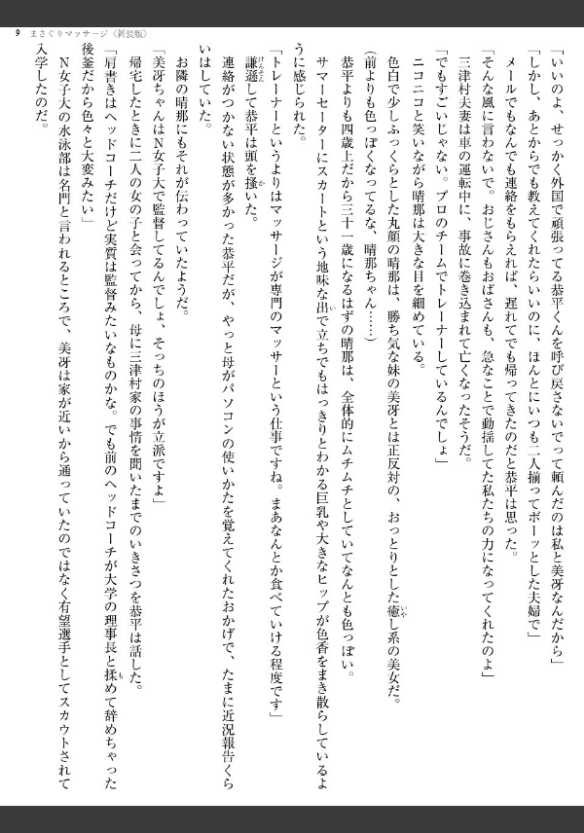 9 まさぐりマッサージ〈新装版〉
「いいのよ、せっかく外国で頑張ってる恭平くんを呼び戻さないでって頼んだのは私と美冴なんだから」
「しかし、あとからでも教えてくれたらいいのに、ほんとにいつも二人揃ってボーッとした夫婦で」
メールでもなんでも連絡をもらえれば、遅れてでも帰ってきたのだと恭平は思った。
「そんな風に言わないで。おじさんもおばさんも、急なことで動揺してた私たちの力になってくれたのよ」
三津村夫妻は車の運転中に、事故に巻き込まれて亡くなったそうだ。
「でもすごいじゃない。プロのチームでトレーナーしているんでしょ」
ニコニコと笑いながら晴那は大きな目を細めている。
色白で少しふっくらとした丸顔の晴那は、勝ち気な妹の美冴とは正反対の、おっとりとした癒し系の美女だ。
(前よりも色っぽくなってるな、晴那ちゃん……)
恭平よりも四歳上だから三十一歳になるはずの晴那は、全体的にムチムチとしていてなんとも色っぽい。
サマーセーターにスカートという地味な出で立ちでもはっきりとわかる巨乳や大きなヒップが色香をまき散らしているよ
うに感じられた。
「トレーナーというよりはマッサージが専門のマッサーという仕事ですね。まあなんとか食べていける程度です」
謙遜して恭平は頭を掻いた。
連絡がつかない状態が多かった恭平だが、やっと母がパソコンの使いかたを覚えてくれたおかげで、たまに近況報告くら
いはしていた。
お隣の晴那にもそれが伝わっていたようだ。
「美冴ちゃんはＮ女子大で監督してるんでしょ、そっちのほうが立派ですよ」
帰宅したときに二人の女の子と会ってから、母に三津村家の事情を聞いたまでのいきさつを恭平は話した。
「肩書きはヘッドコーチだけど実質は監督みたいなものかな。でも前のヘッドコーチが大学の理事長と揉めて辞めちゃった
後釜だから色々と大変みたい」
Ｎ女子大の水泳部は名門と言われるところで、美冴は家が近いから通っていたのではなく有望選手としてスカウトされて
入学したのだ。